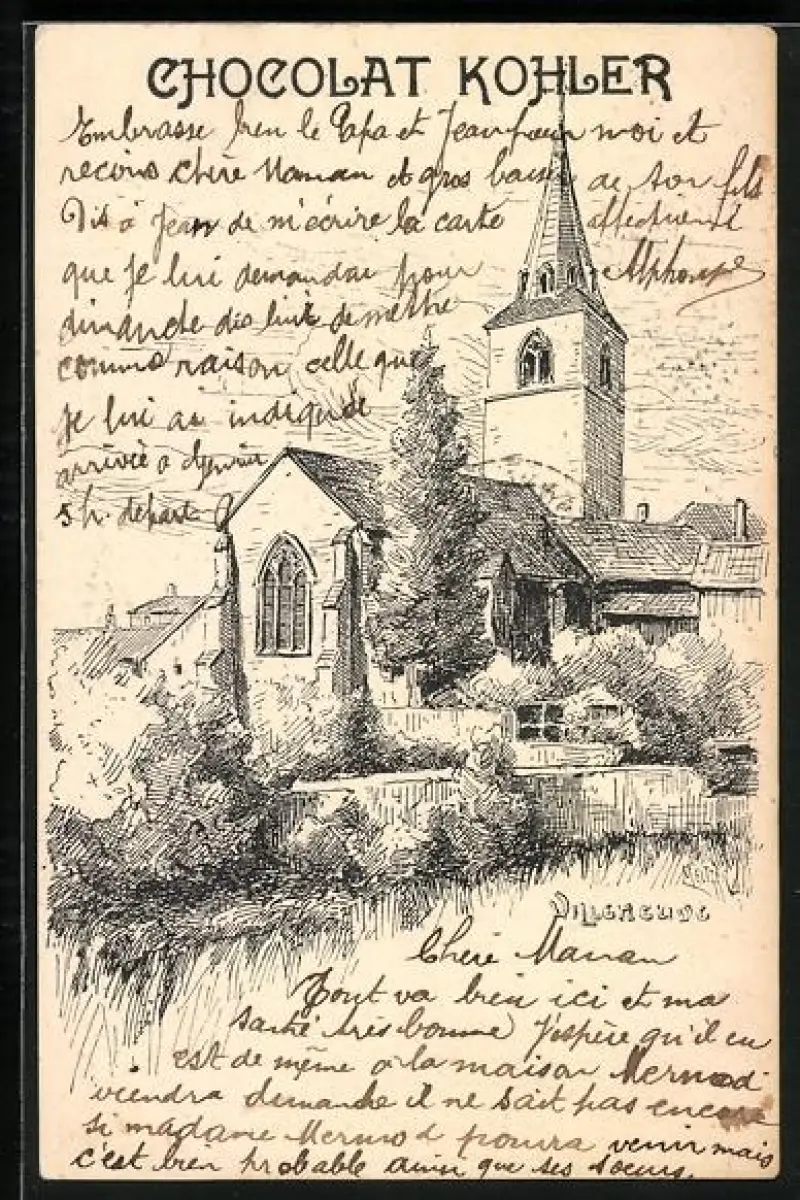 CHOCOLAT KOHLER
Embrasse bien le Papa et Jean pour moi et
reçois chère Maman et gros baiser de ton fils
Dis à Jean de m'écrire la carte affectionné
que je lui demandai pour Alphonse
dimanche dis lui de mettre
comme raison celle que
je lui ai indiquée
arrivée à
5 h. départ
VILLENEUVE
Chère Maman
Tout va bien ici et ma
santé très bonne j'espère qu'il en
est de même à la maison Mermod
viendra dimanche il ne sait pas encore
si madame Mermod pourra venir mais
c'est bien probable ainsi que ses soeurs.